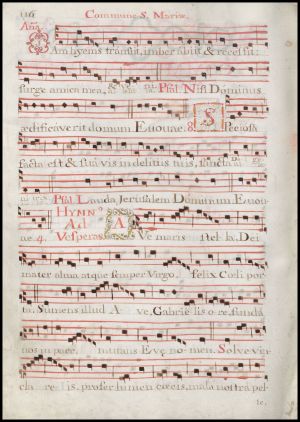 116 Commune S. Mariæ.
Añã
Am hyems transiit, imber abiit & recessit:
surge amica mea, & Psal. Nisi Dominus
ædificaverit domum. Euouae. 8. Speciosa
facta est & suavis in delitiis tuis, sancta
Psal. Lauda Jerusalem Dominum. Euou
HYMN9
Ad Vesperas. AVe maris stel la, Dei
mater alma, atque semper Virgo, felix Cœli por
ta. Sumens illud A ve, Gabrie lis o re, funda
nos in pace, mutans Evę no men. Solve vin
cla re is, profer lumen cœcis, mala nostra pel
le,